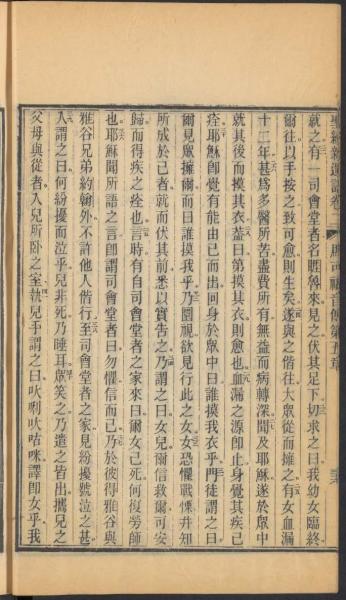 聖經新遺詔卷二 馬可福音傳第五章
就之有一司會堂者名睚魯來見之伏其足下切求之曰我幼女臨終
爾往以手按之致可愈則生矣遂與之偕往大眾從而擁之有女血漏
十二年甚爲多醫所苦盡費所有無益而病轉深聞及耶穌遂於眾中
就其後而摸其衣葢曰第摸其衣則愈也血漏之源卽止身覺其疾已
痊耶穌卽覺有能由已而出回身於眾中曰誰摸我衣乎門徒謂之曰
爾見眾擁爾而曰誰摸我乎乃圜視欲見行此之女女恐懼戰慄井知
所成於己者就而伏其前悉以實告之乃謂之曰女兒爾信救爾可安
歸而得疾之痊也言時有自司會堂者之家來曰爾女已死何復勞師
也耶穌聞所語之言卽謂司會堂者曰勿懼信而已乃於彼得雅谷與
雅谷兄弟約翰外不許他人偕行至司會堂者之家見紛擾號泣之甚
入謂之曰何紛擾而泣乎兒非死乃睡耳眾笑之乃遣之皆出攜兒之
父母與從者入兒所卧之室執兒手謂之曰𠯈唎㕭咕咪譯卽女乎我